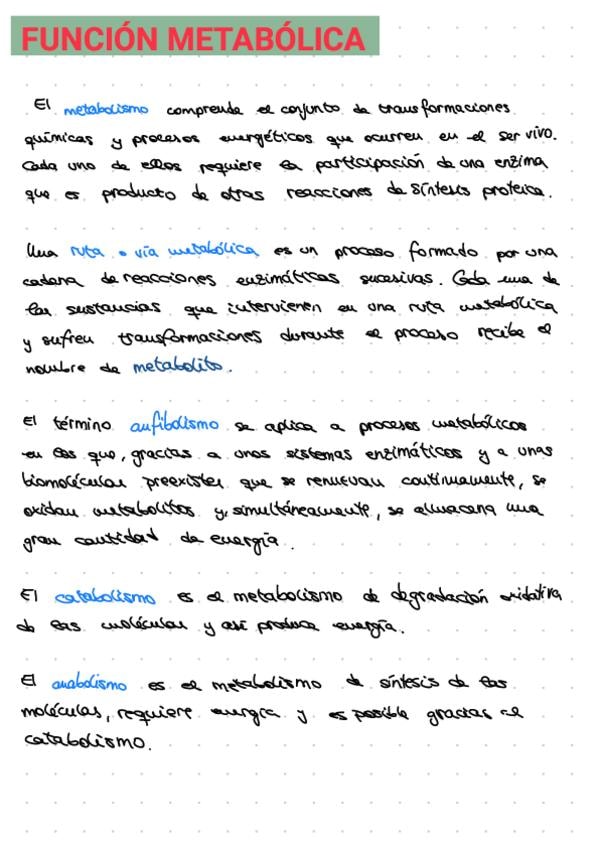 FUNCIÓN METABÓLICA
El metabolismo comprende el conjunto de transformaciones
químicas y procesos energéticos que ocurren en el ser vivo.
Cada uno de ellos requiere la participación de una enzima
que es producto de otras reacciones de síntesis proteica.
Una ruta o vía metabólica es un proceso formado por una
cadena de reacciones enzimáticas sucesivas. Cada una de
las sustancias que intervienen en una ruta metabólica
y sufren transformaciones durante el proceso recibe el
nombre de metabolito.
El término anfibolismo se aplica a procesos metabólicos
en los que, gracias a unos sistemas enzimáticos y a unas
biomoléculas preexistes que se renuevan continuamente, se
oxidan metabolitos y, simultáneamente, se almacena una
gran cantidad de energía.
El catabolismo es el metabolismo de degradación oxidativa
de las moléculas y así produce energía.
El anabolismo es el metabolismo de síntesis de las
moléculas, requiere energía y es posible gracias al
catabolismo.